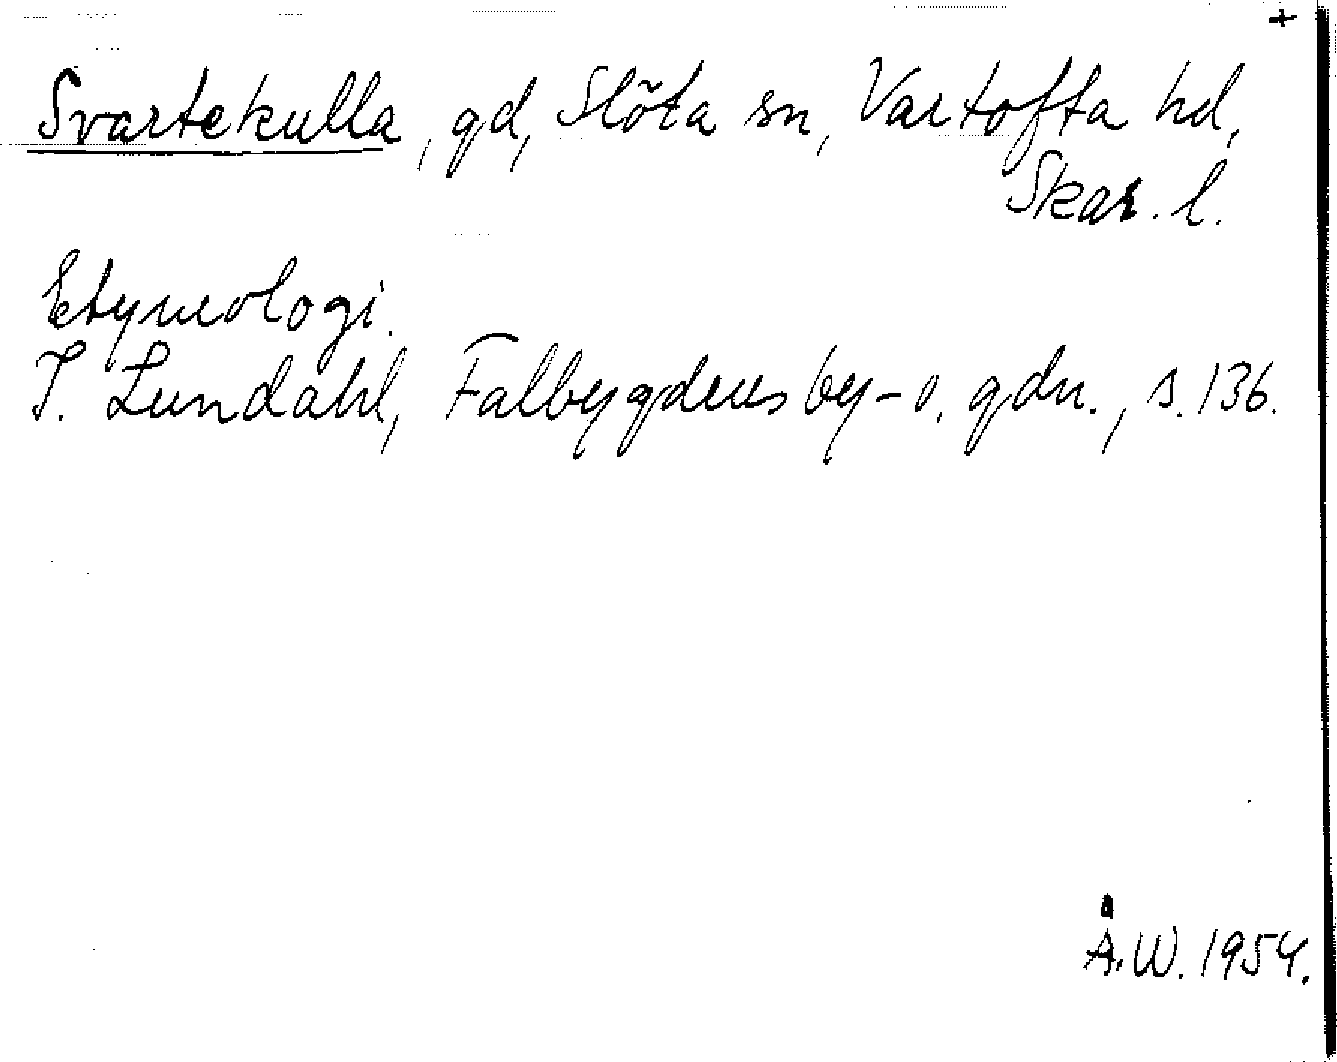 +
Svartekulla, gd, Slöta sn, Vartofta hd,
Skar. l.
Etymologi.
I. Lundahl, Falbygdens by- o. gdn., s. 136.
Å.W. 1954.